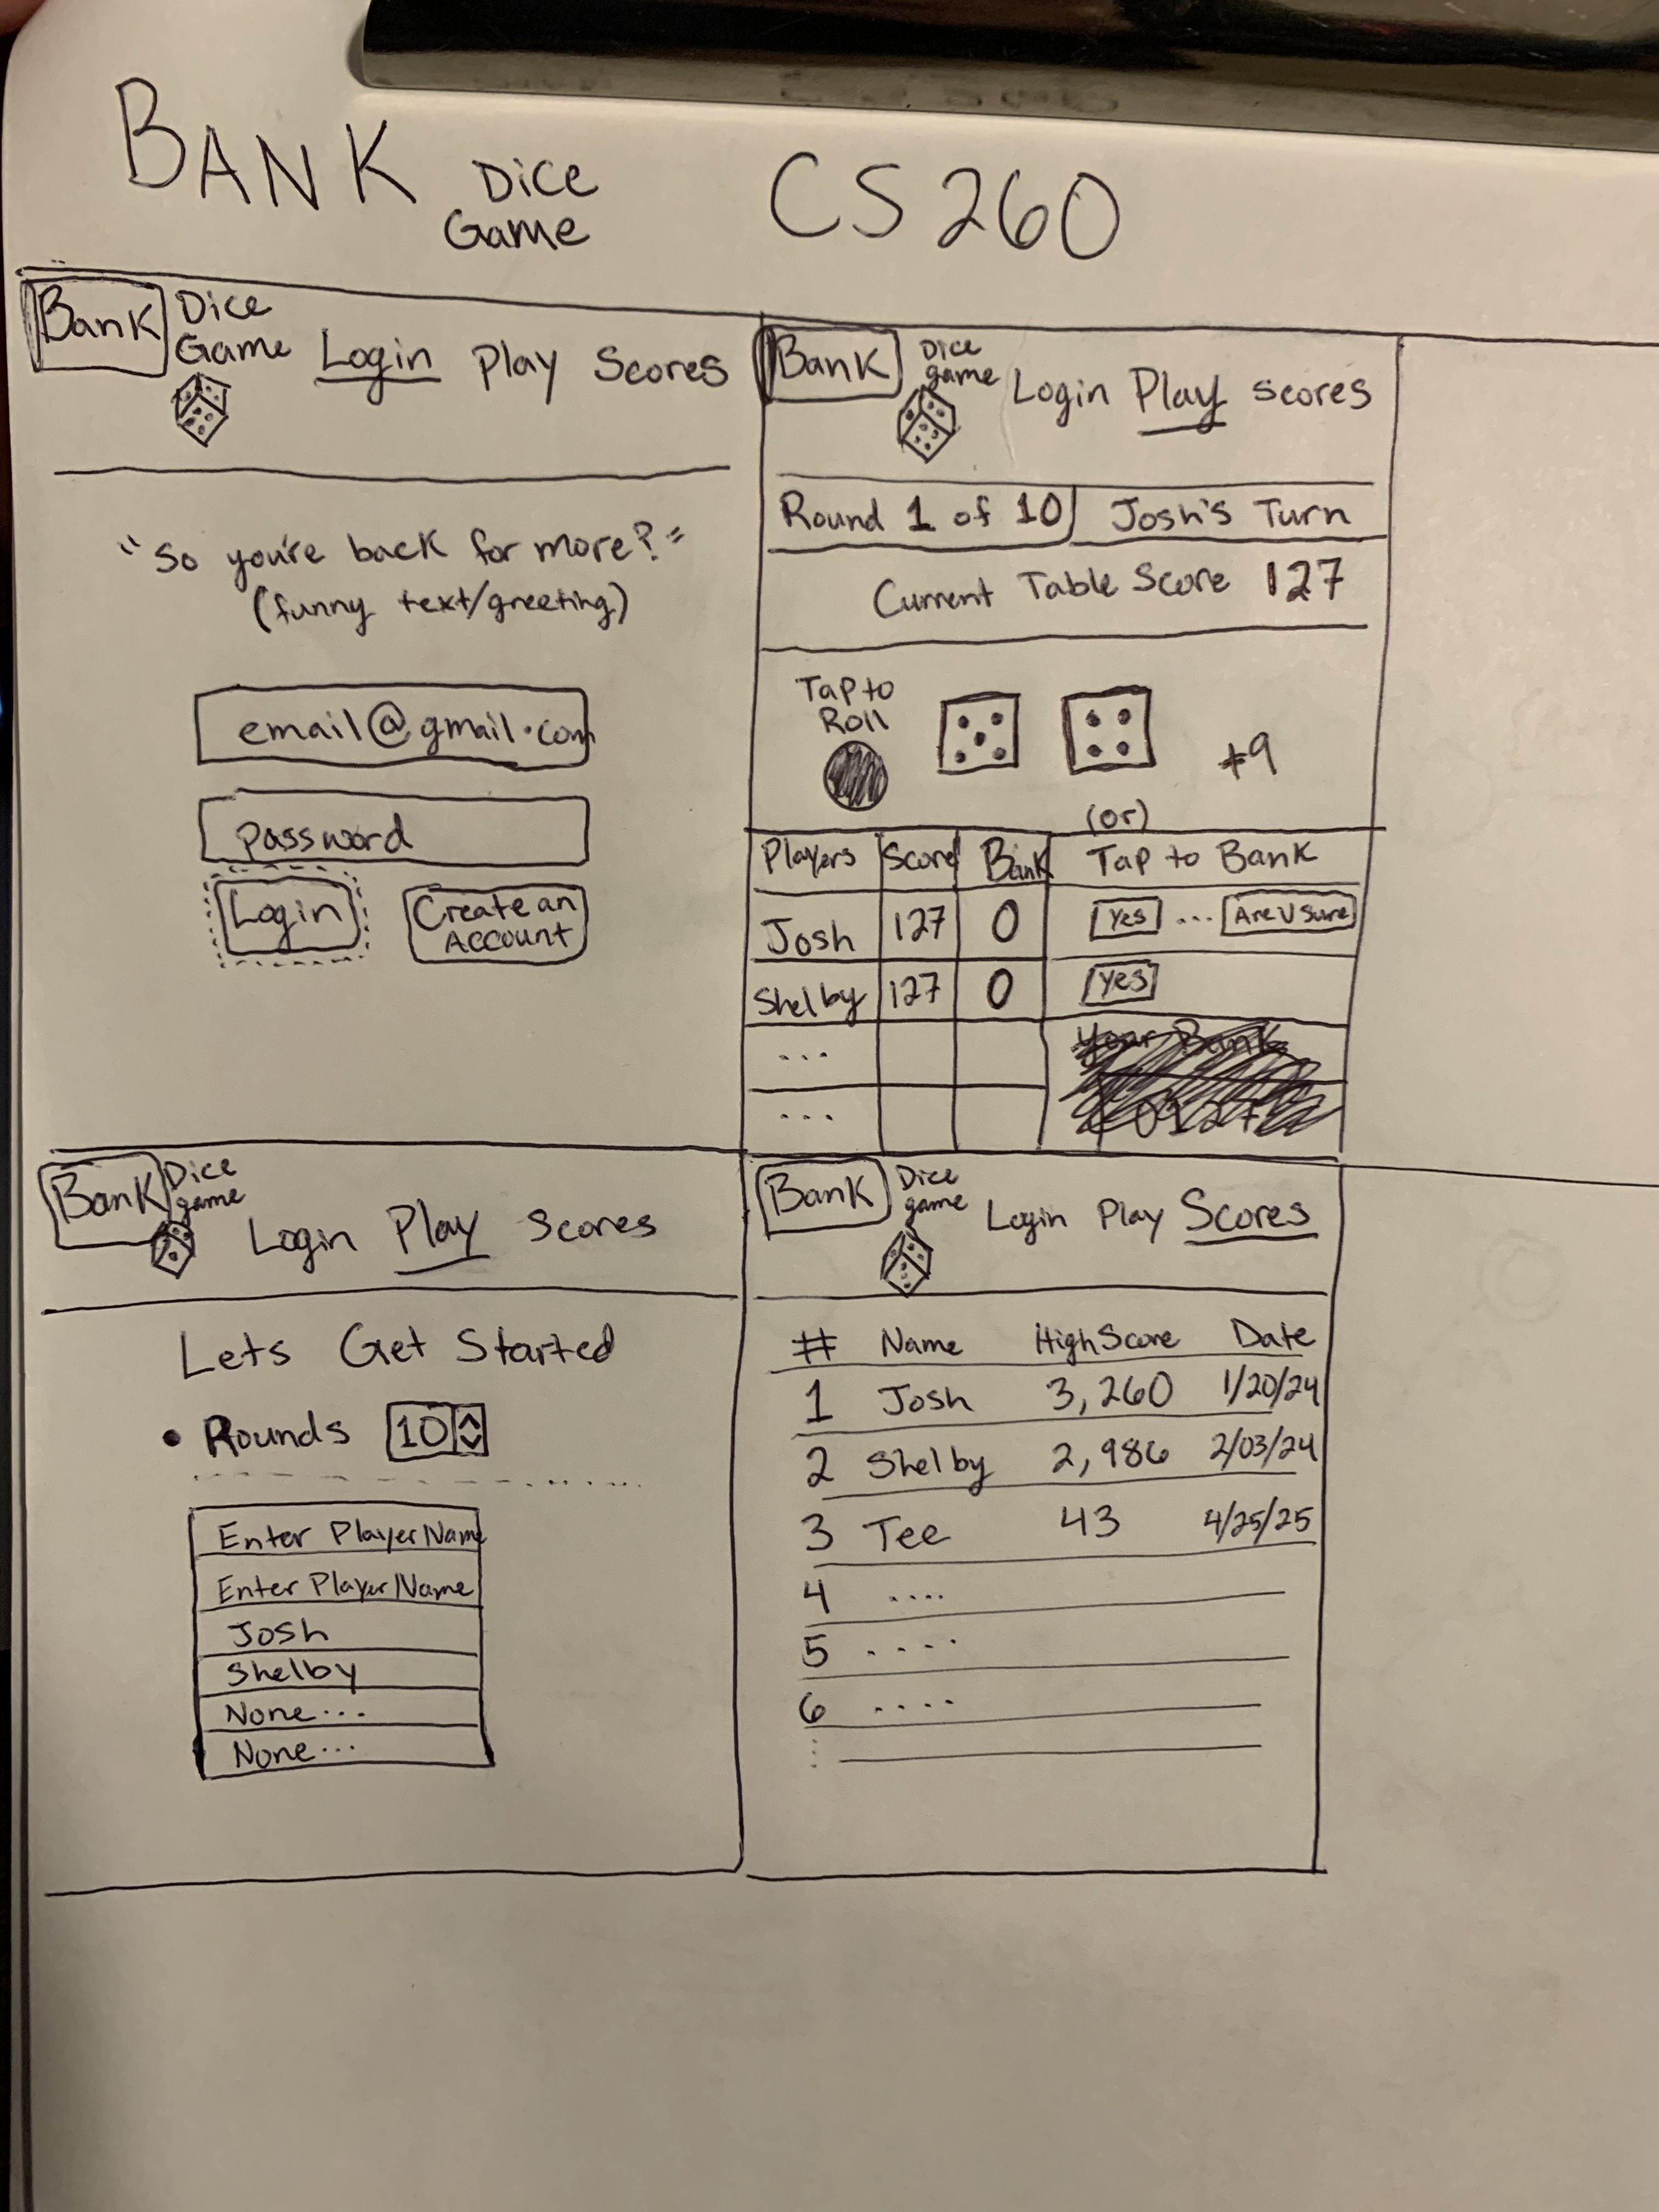 BANK Dice Game CS 260
Bank Dice Game Login Play Scores
"So you're back for more?"
(funny text/greeting)
email@gmail.com
password
Login
Create an Account
Bank Dice game Login Play scores
Round 1 of 10 Josh's Turn
Current Table Score 127
Tap to Roll
+9
(or)
Players Score Bank Tap to Bank
Josh 127 0 Yes ... Are U Sure
Shelby 127 0 Yes
...
...
Your Bank
Bank Dice game Login Play scores
Lets Get Started
• Rounds 10
Enter Player Name
Enter Player Name
Josh
Shelby
None...
None...
Bank Dice game Login Play Scores
# Name High Score Date
1 Josh 3,260 1/20/24
2 Shelby 2,986 2/03/24
3 Tee 43 4/25/25
4 ....
5 ....
6 ....